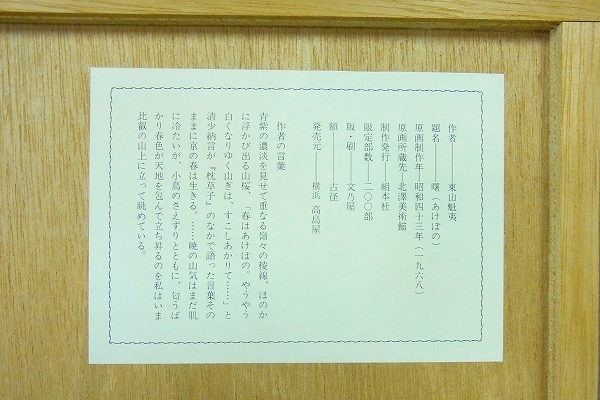 作者――東山魁夷
題名――曙（あけぼの）
原画制作年―昭和四十三年（一九六八）
原画所蔵先―北澤美術館
制作発行―組本社
限定部数―二〇〇部
版・刷―文乃屋
額――古径
発売元――横浜 高島屋
作者の言葉
青紫の濃淡を見せて重なる嶺々の稜線、ほのか
に浮かび出る山桜、「春はあけぼの。やうやう
白くなりゆく山ぎは、すこしあかりて……」と
清少納言が『枕草子』のなかで語った言葉その
ままに京の春は生きる。……暁の山気はまだ肌
に冷たいが、小鳥のさえずりとともに、匂うば
かり春色が天地を包んで立ち昇るのを私はいま
比叡の山上に立って眺めている。